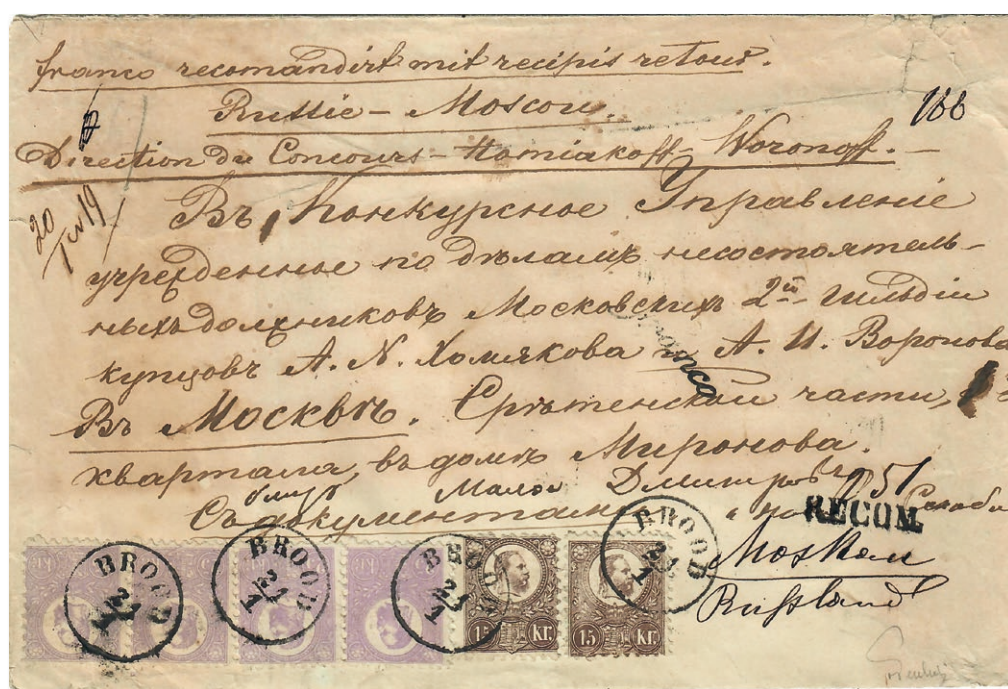 franco recomandirt mit recipis retour.
Russie - Moscou.
166
Direction du Concours - Homiakoff - Woronoff. -
20/I N 19
Въ Конкурсное Управленіе
учрежденное по дѣламъ несостоятель-
ныхъ должниковъ Московскихъ 2й гильдіи
купцовъ А. N. Хомякова и А. И. Воронова
franca
Въ Москвѣ. Срѣтенской части, 1 э
квартала, въ домѣ Миронова.
близъ Малой Дмитровки
Съ документами
51
RECOM.
Moskau
Russland
BROOD
21
1
BROOD
21
1
BROOD
21
1
BROOD
21
1
15 Kr.
15 Kr.